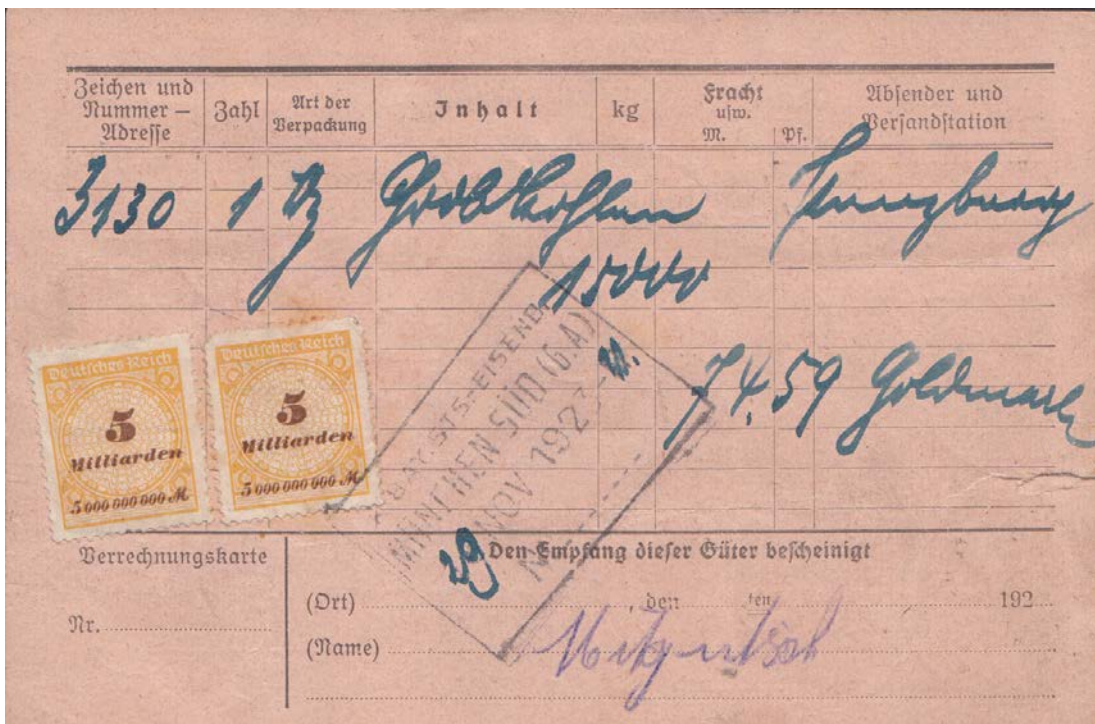 Zeichen und Nummer — Adresse
Zahl
Art der Verpackung
Inhalt
kg
Fracht usw. M.
Pf.
Absender und Versandstation
3130 1 Grobkohlen
15000
74.59 Goldmark
Deutsches Reich
5
Milliarden
5 000 000 000 M
Deutsches Reich
5
Milliarden
5 000 000 000 M
BAY. STS.-EISENB.
MÜNCHEN SÜD (G.A)
29 NOV 1923
N
Verrechnungskarte
Nr.
Den Empfang dieser Güter bescheinigt
(Ort) , den ten 192
(Name)